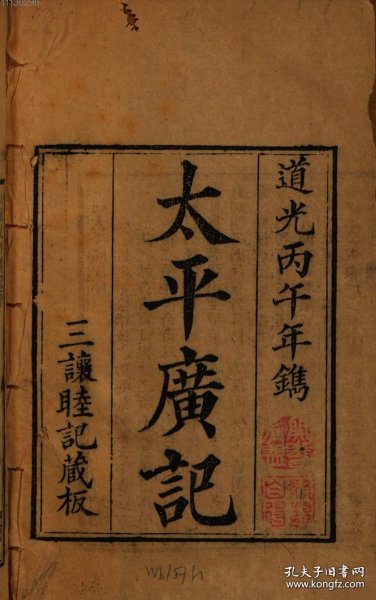 11130296
道光丙午年鐫
太平廣記
三讓睦記藏板
孔夫子旧书网